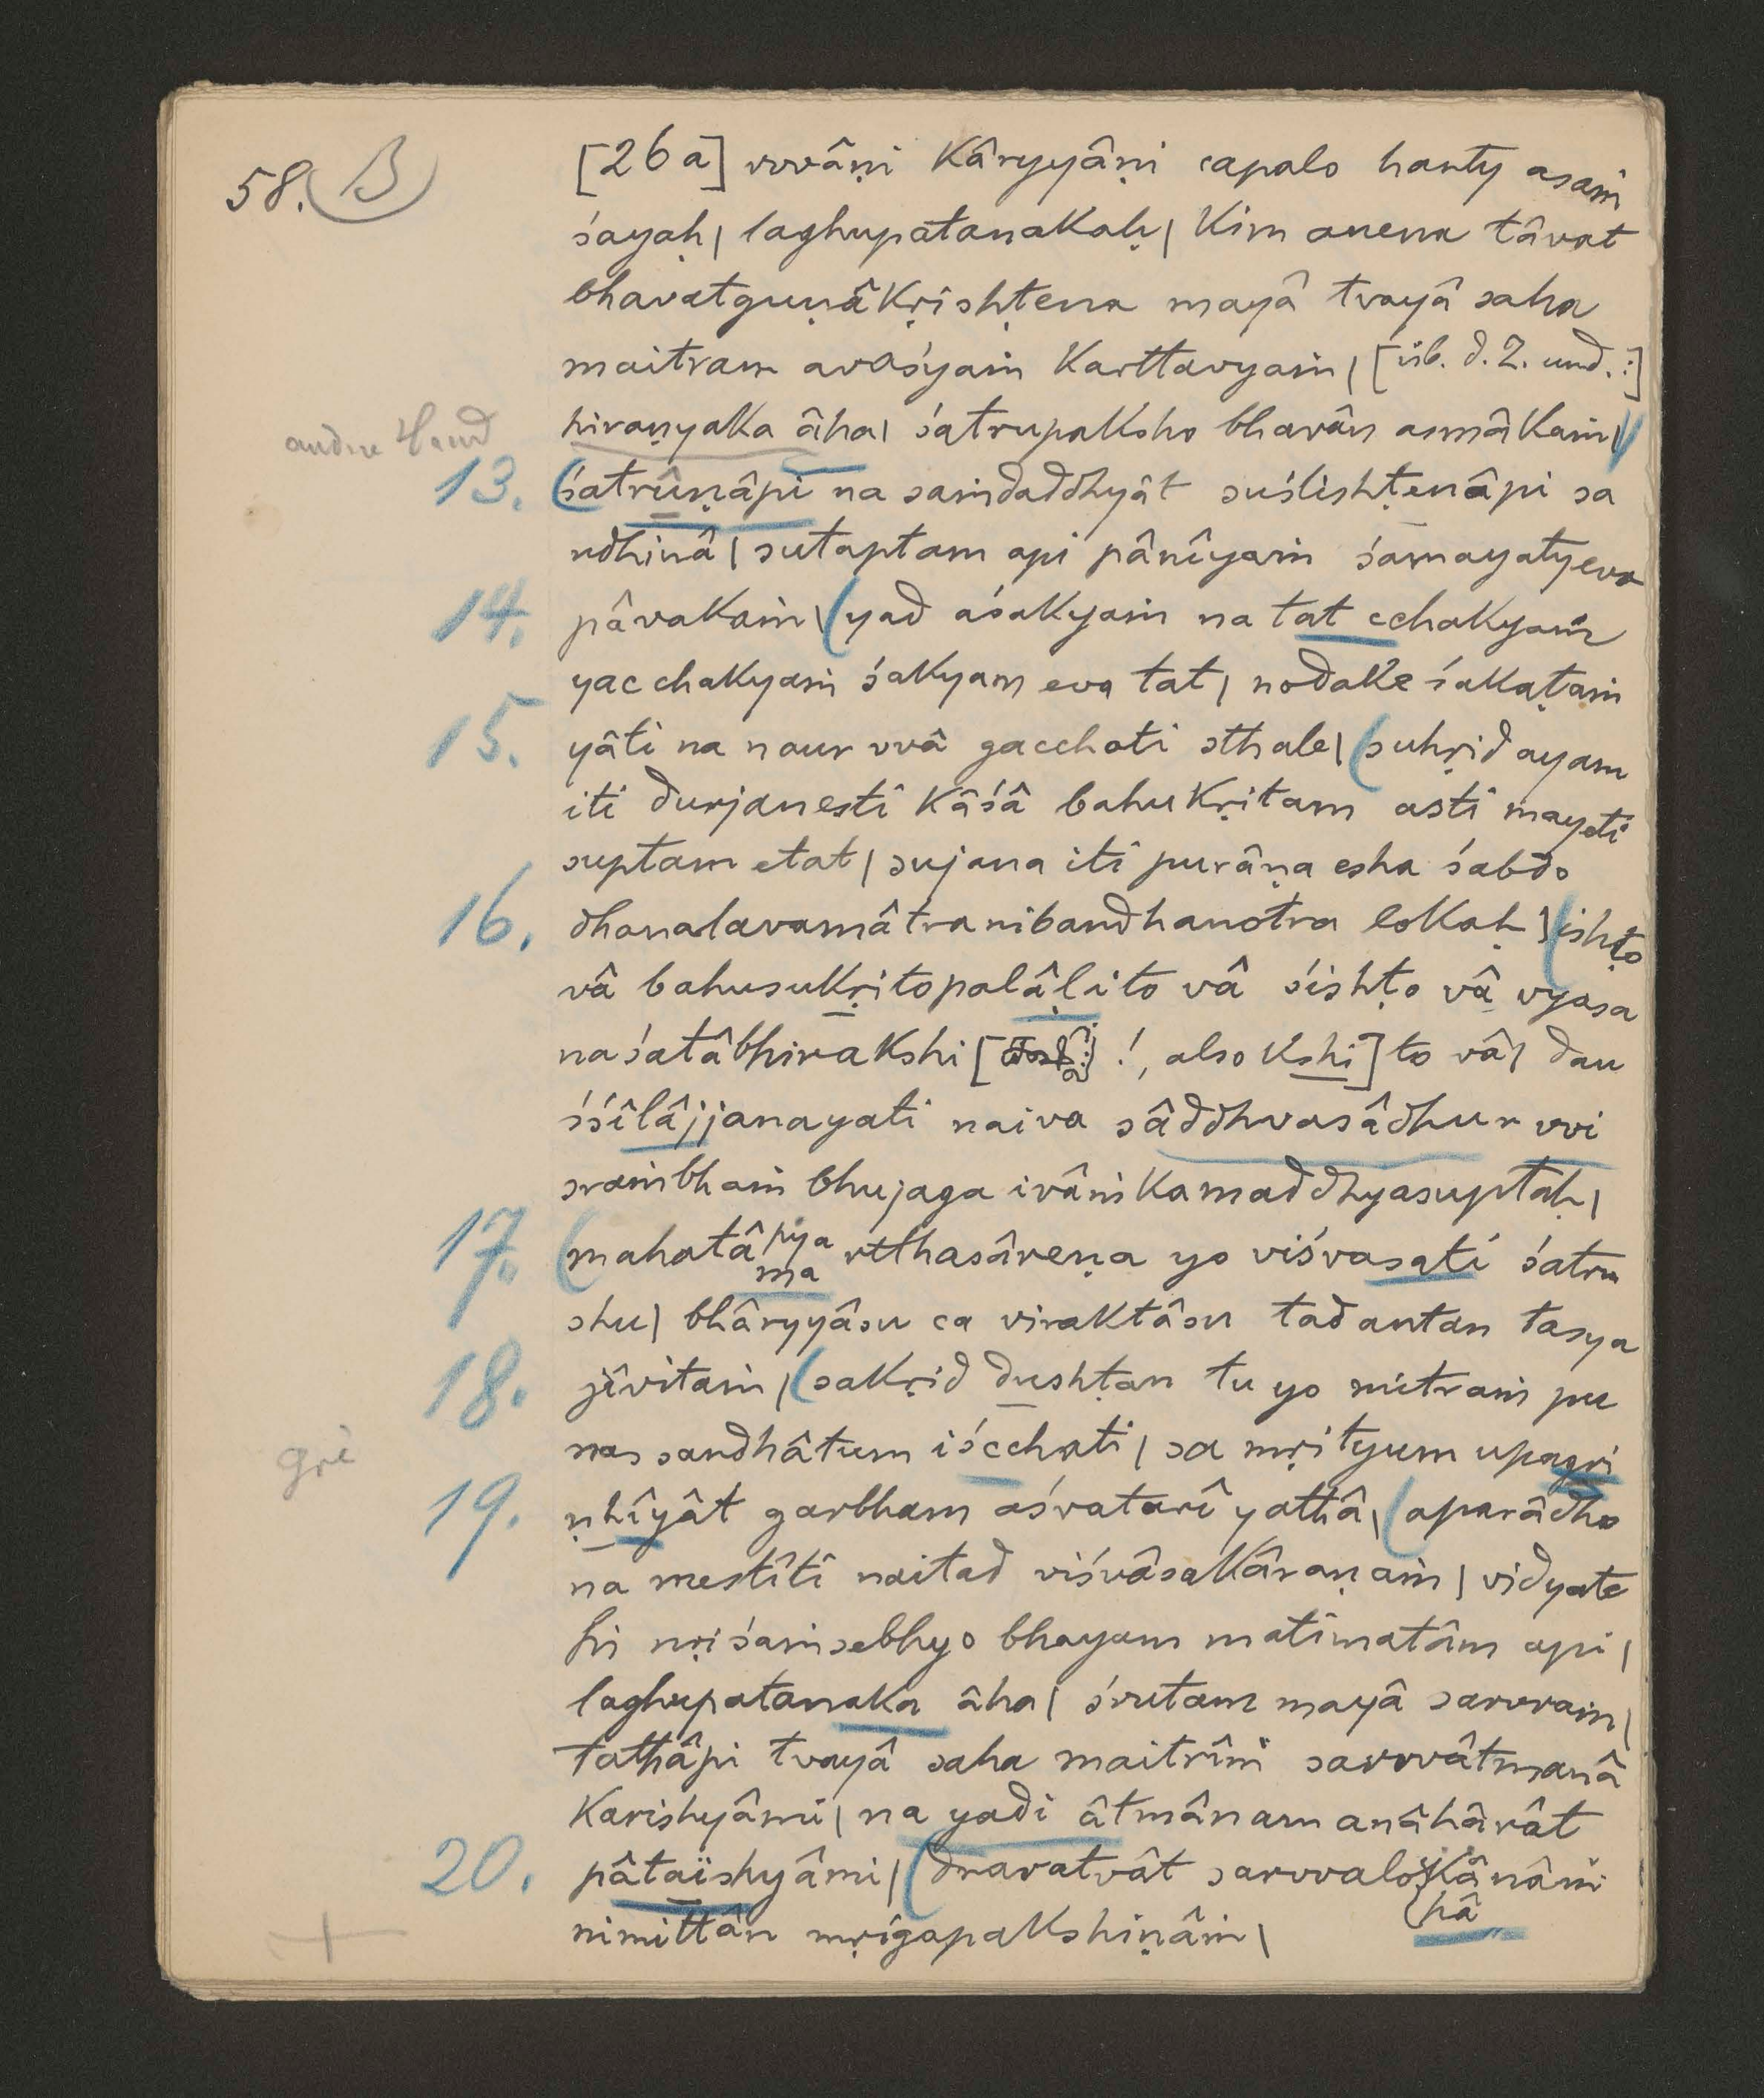 58. B
[26a] vvâṇi kâryyâṇi capalo hanty asaṁ
śayaḥ| laghupatanakaḥ| kim anena tâvat
bhavatguṇâkṛishṭena mayâ tvayâ saha
maitram avaśyaṁ karttavyaṁ| [üb. d. Z. und.:]
andre Hand hiraṇyaka âha| śatrupaksho bhavân asmâkaṁ|
13. (śatrûṇâpi na saṁdaddhyât suślishṭenâpi sa
ndhinâ| sutaptam api pânîyaṁ śamayatyeva
14. pâvakaṁ| (yad aśakyaṁ na tat cchakyaṁ
yac chakyaṁ śakyam eva tat| nodake śakaṭaṁ
15. yâti na naur vvâ gacchati sthale| (suhṛid ayam
iti durjanesti kâśâ bahukṛitam asti mayeti
suptam etat| sujana iti purâṇa esha śabdo
16. dhanalavamâtranibandhanotra lokaḥ| (ishṭo
vâ bahusukṛitopalâḷito vâ śishṭo vâ vyasa
naśatâbhirakshi [!, also kshi] to vâ| dau
śśîlâjjanayati naiva sâddhvasâdhur vvi
sraṁbhaṁ bhujaga ivâṁkamaddhyasuptaḥ|
17. (mahatâ pya rtthasâreṇa yo viśvasati śatru
ma
shu| bhâryyâsu ca viraktâsu tadantan tasya
18. jîvitaṁ| (sakṛid dushṭan tu yo mitraṁ pu
nas sandhâtum iścchati| sa mṛityum upagṛi
gṛi
19. ṇhîyât garbham aśvatarî yathâ| (aparâdho
na mestîti naitad viśvâsakâraṇaṁ| vidyate
hi nṛiśaṁsebhyo bhayam matimatâm api|
laghupatanaka âha| śrutam mayâ sarvvaṁ|
tathâpi tvayâ saha maitrîṁ sarvvâtmanâ
karishyâmi| na yadi âtmânam anâhârât
20. pâtaïshyâmi| (dravatvât sarvvalokânâṁ
(hâ
nimittân mṛigapakshiṇâṁ|